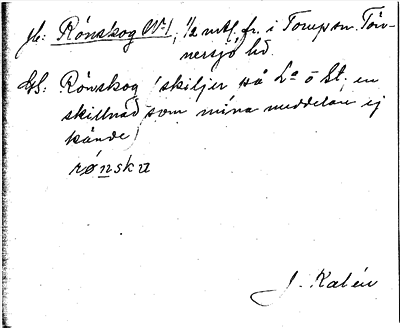 Jb: Rönskog Nr 1, 1/2 mtl. fr. i Torups sn. Tön-
nersjö hd.
Gs: Rönskog (skiljer på La o St, en
skillnad som mina meddelare ej
kände)
rønsku
J. Kalén